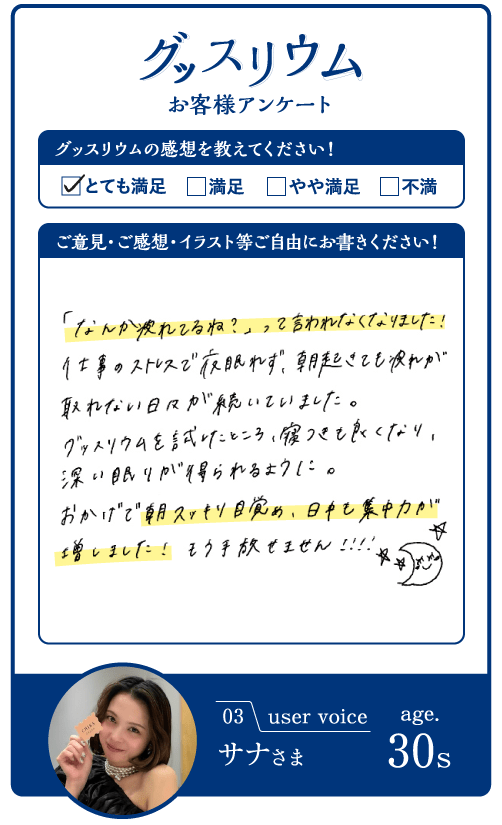 グッスリウム
お客様アンケート
グッスリウムの感想を教えてください！
とても満足 満足 やや満足 不満
ご意見・ご感想・イラスト等ご自由にお書きください！
「なんか疲れてるね？」って言われなくなりました！
仕事のストレスで夜眠れず、朝起きても疲れが
取れない日々が続いていました。
グッスリウムを試したところ、寝つきも良くなり、
深い眠りが得られるように。
おかげで朝スッキリ目覚め、日中も集中力が
増しました！ もう手放せません!!!!
03 user voice
サナさま
age.
30s